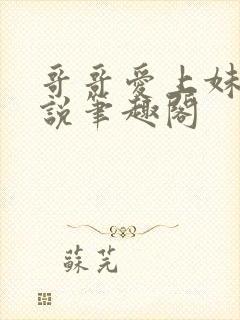 哥哥愛上妹
說筆趣閣
蘇芫